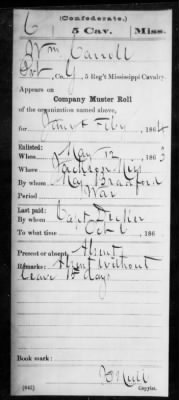 (Confederate.)
C 5 Cav. Miss.
Wm Carroll
Pvt, Co. G, 5 Reg't Mississippi Cavalry.
Appears on
Company Muster Roll
of the organization named above,
for Jan & Feby, 1864
Enlisted:
When May 12, 1863
Where Jackson Miss
By whom Maj Bradford
Period War
Last paid:
By whom Capt
To what time Oct 6, 186
Present or absent Absent
Remarks: Absent without
leave 15 days
Book mark:
(642) Copyist.